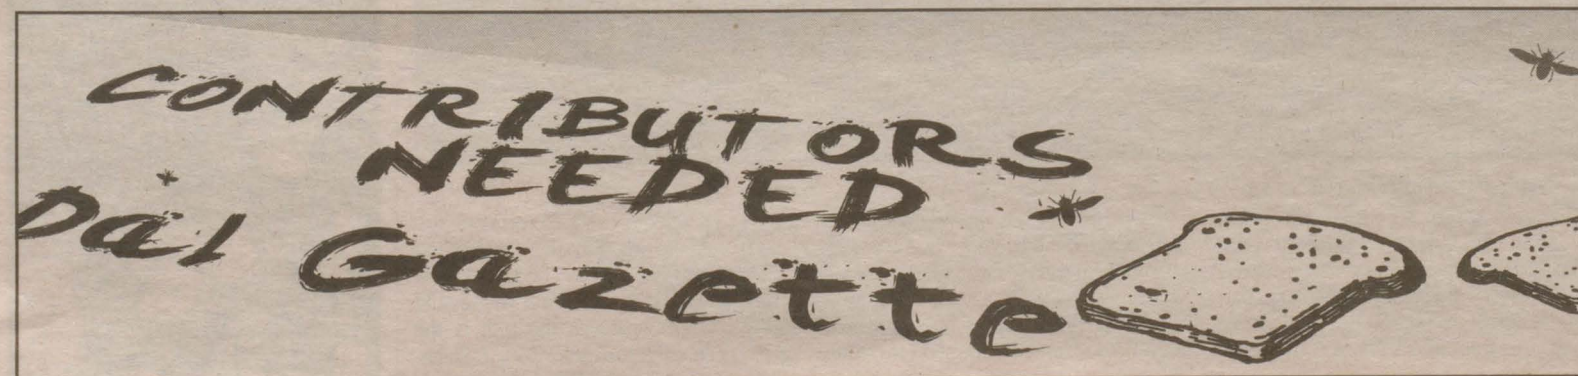 CONTRIBUTORS
NEEDED
Dal Gazette